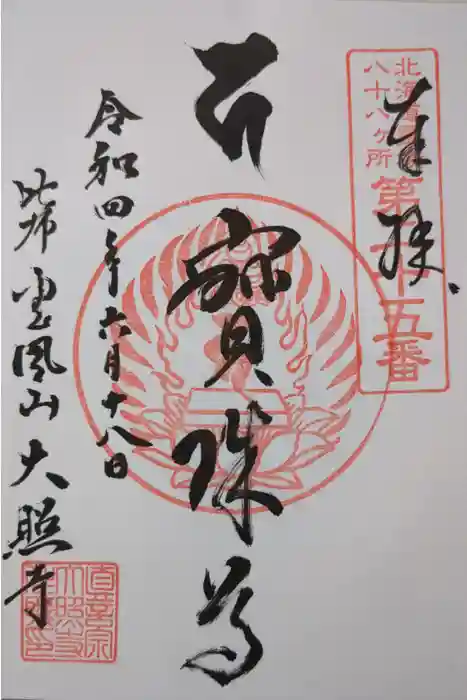 奉拝
北海道
八十八ヶ所
十五番
寳珠尊
令和四年六月十八日
比布 鳳山 大照寺
真言宗
大照寺